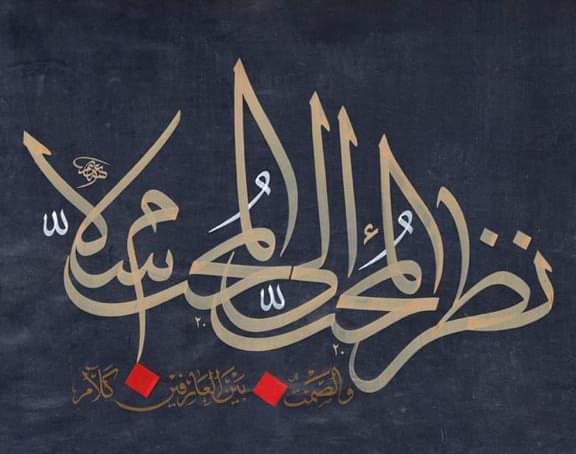 نظر المحب إلى المحب سلام
والصمت بين العارفين كلام